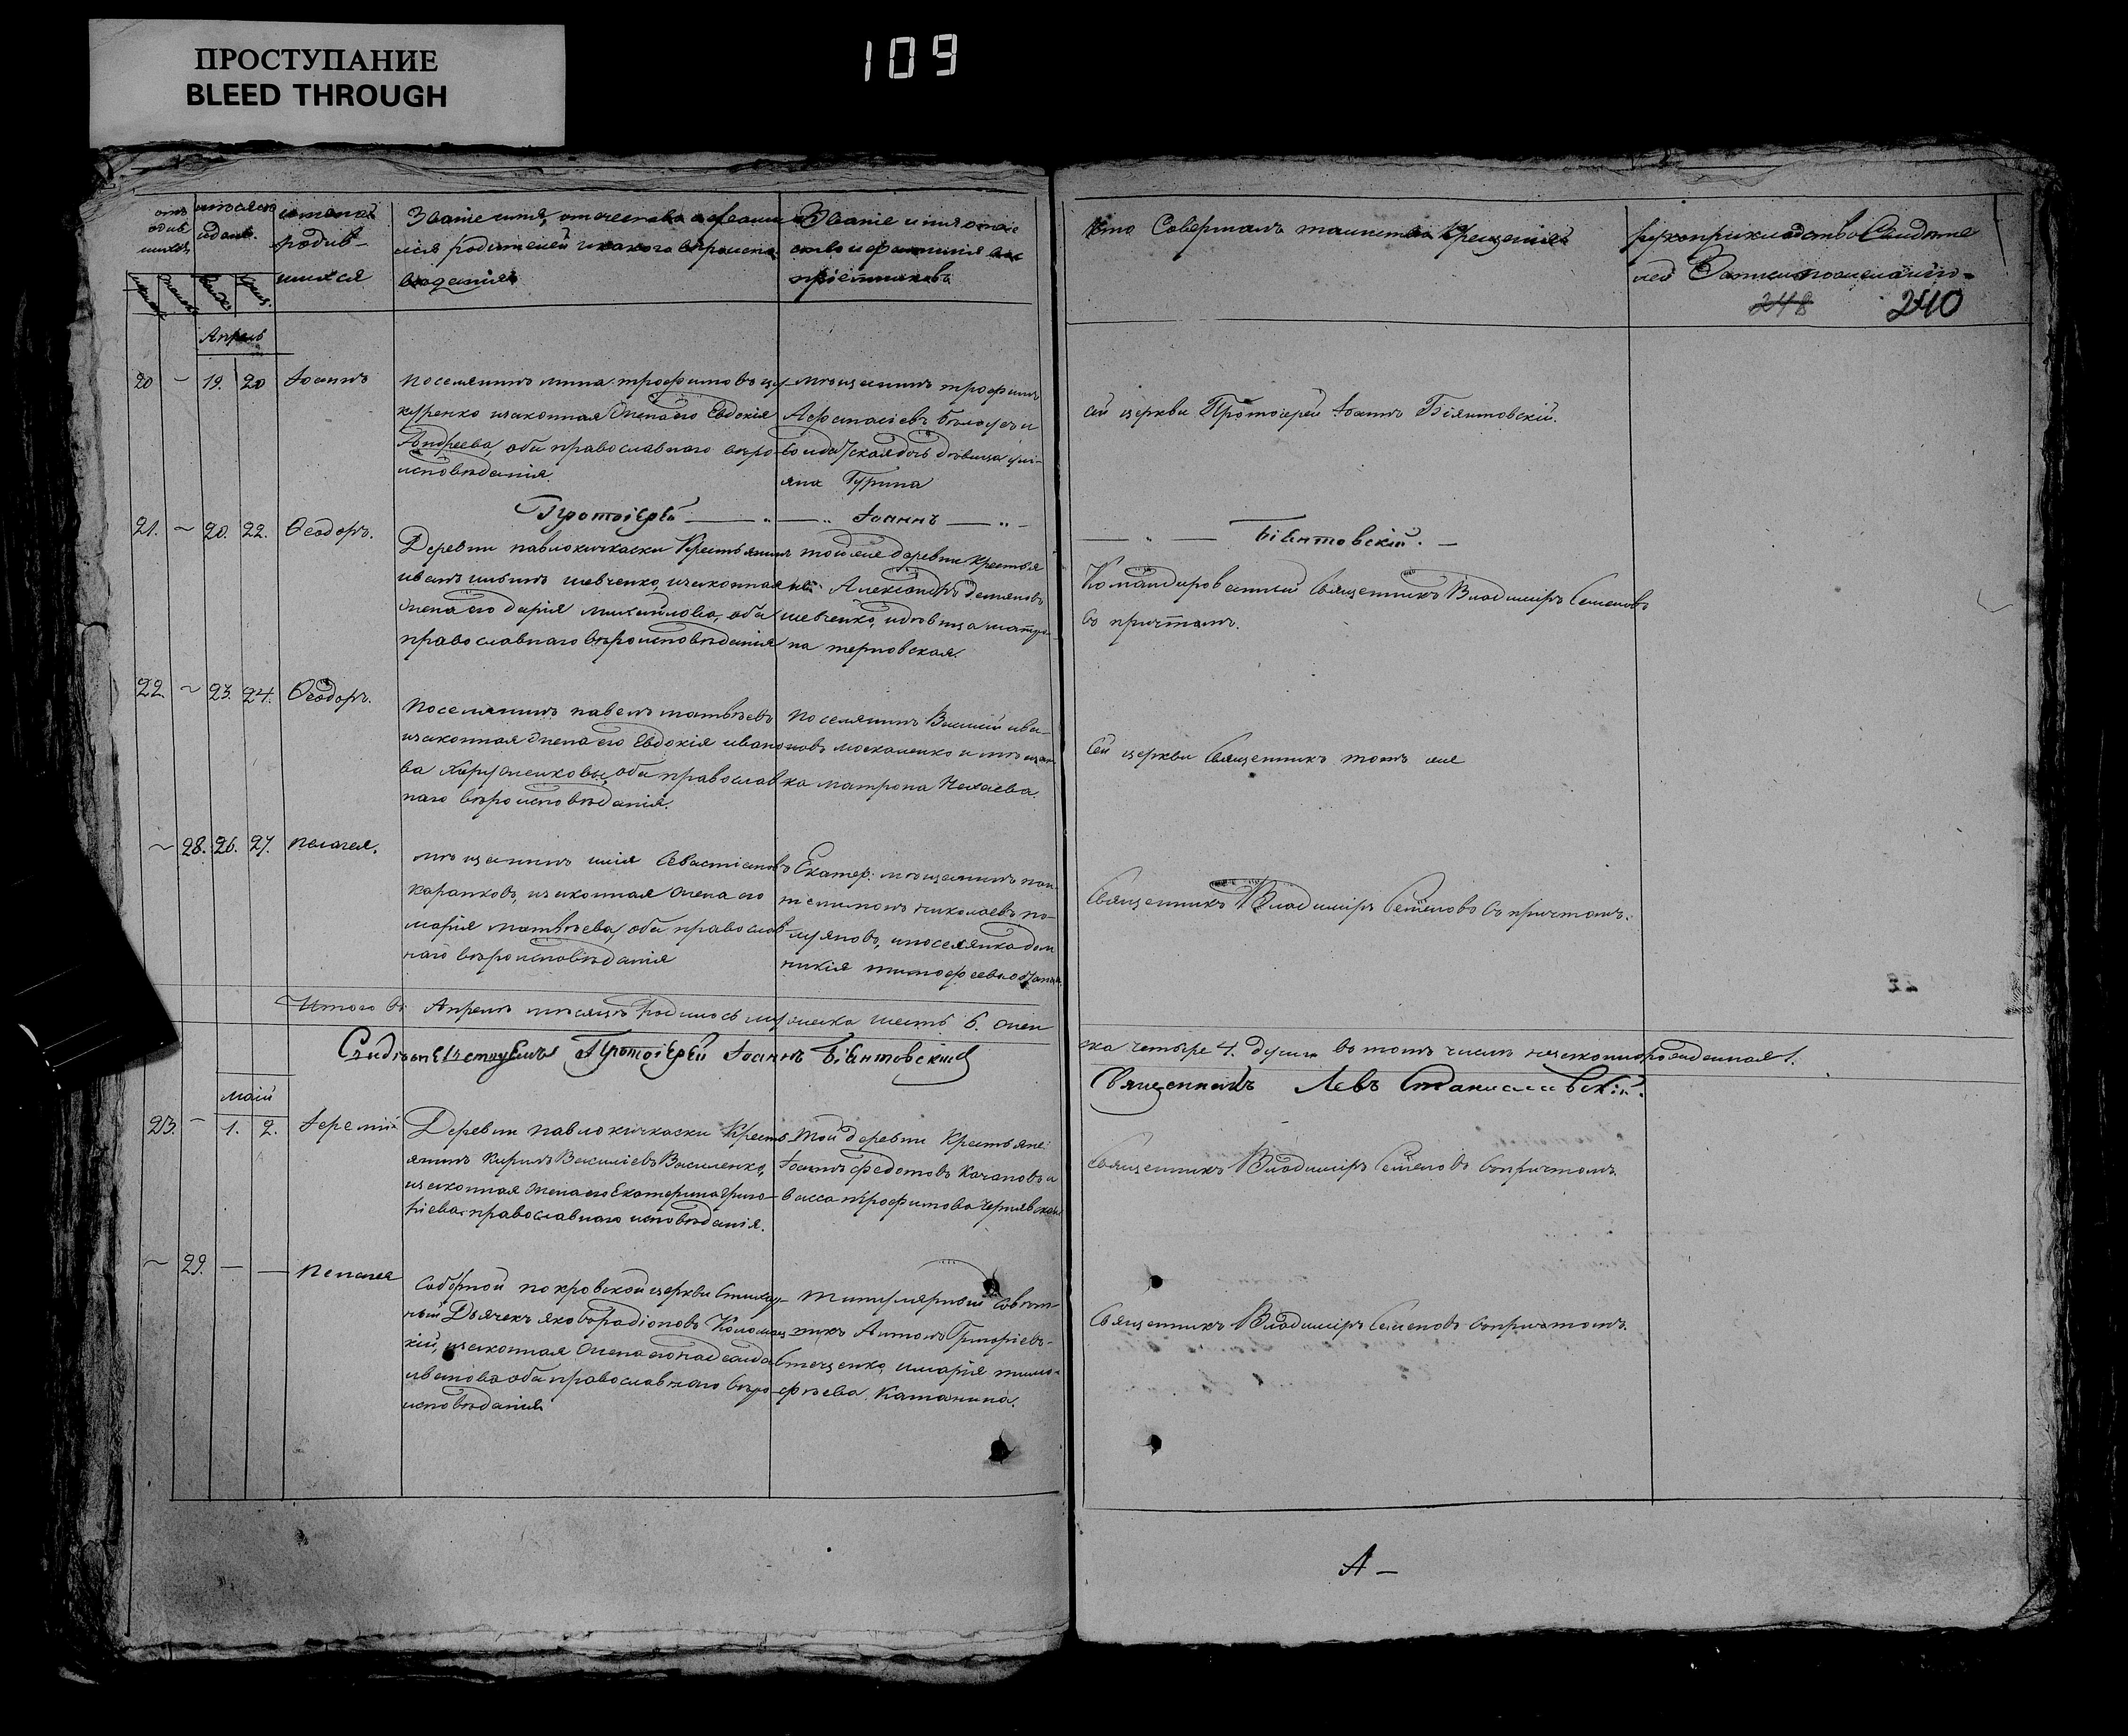 ПРОСТУПАНИЕ
BLEED THROUGH
109
имена
родив-
шихся
Званіе имя, отчество и фами-
лія родителей и какого вероиспо-
веданія
Званіе имя отче
ство и фамилія вос
пріемниковъ
Кто Совершалъ таинство крещенія
рукоприкладство Свидете
лей Записи по желанію
248 240
Апрель
20 - 19. 20 Іоаннъ
Поселянинъ мина трофимовъ
изаконная жена его Евдокія
Андреева, оба православнаго веро-
исповѣданія.
мѣщанинъ трофимъ
Афанасіевъ
дѣвица
Гурина
сей церкви Протоіерей Іоаннъ Біянтовскій.
Протоіерей — „ — „ Іоаннъ — „ —
— „ — Біянтовскій. —
21. ~ 20. 22. Ѳеодоръ.
Деревни павлокичкаски Крестьянинъ
иванъ ильинъ шевченко, изаконная
жена его дарія михайлова, оба
православнаго вѣроисповѣданія
той же деревни Крестья
нинъ Александръ демяновъ
шевченко, и дѣвица матро-
на терновская.
Командированный Священникъ Владиміръ Семеновъ
съ причтомъ.
22. ~ 23. 24. Ѳеодоръ.
Поселянинъ павелъ матвѣевъ
изаконная жена его Евдокія ивано
ва оба православ
наго вѣроисповѣданія.
Поселянинъ Василій ива-
новъ москаленко и мѣщан
ка матрона Нехаева.
Сей церкви Священникъ тотъ же
~ 28. 26. 27. пелагея.
мѣщанинъ илія Севастіановъ
карапковъ, изаконная жена его
марія матвѣева, оба православ
наго вѣроисповѣданія
Екатер: мѣщанинъ пан-
телимонъ николаевъ по-
луяновъ, и поселянка дом
никія тимофеева
Священникъ Владиміръ Семеновъ съ причтомъ.
Итого въ Апрелѣ мѣсяцѣ родилось мужеска шесть 6. жен
ска четыре 4. души въ томъ числѣ незаконнорожденная 1.
Свидѣтельствуемъ Протоіерей Іоаннъ Біянтовскій
Священникъ Левъ Станиславскій.
маій
23. - 1. 2. Іеремій
Деревни павлокичкаски Кресть
янинъ Кирилъ Василіевъ Василенко,
изаконная жена его Екатерина григо-
ріева православнаго исповѣданія.
той деревни Крестьяне:
Іоаннъ федотовъ Качановъ и
васса трофимова Чернявская
Священникъ Владиміръ Семеновъ съ причтомъ.
~ 29. — — пелагея
Соборной покровской церкви
Дьячекъ яковъ радіоновъ
кій, изаконная жена его
иванова оба православнаго вѣро-
исповѣданія
титулярный совѣт-
никъ Антонъ Григоріевъ
Стеценко, и марія тимо-
фѣева Катанина.
Священникъ Владиміръ Семеновъ съ причтомъ.
А —